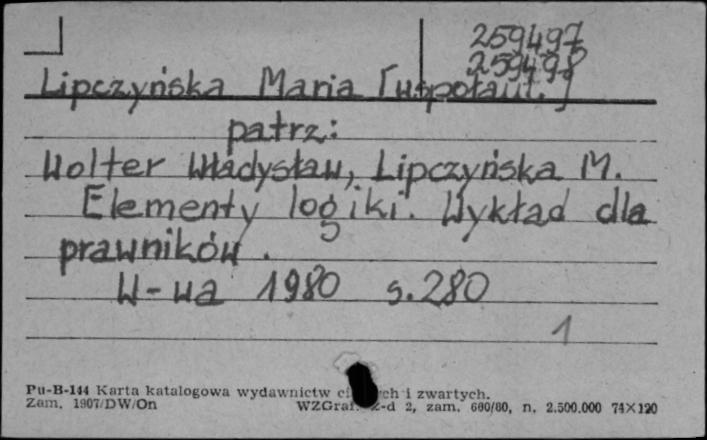 259497
259498
Lipczyńska Maria [współaut.]
patrz:
Wolter Władysław, Lipczyńska M.
Elementy logiki. Wykład dla
prawników.
W-wa 1980 s. 280
1
Pu-B-144 Karta katalogowa wydawnictw ch i zwartych.
Zam. 1907/DW/On WZGraf. Z-d 2, zam. 600/80, n. 2.500.000 74×120